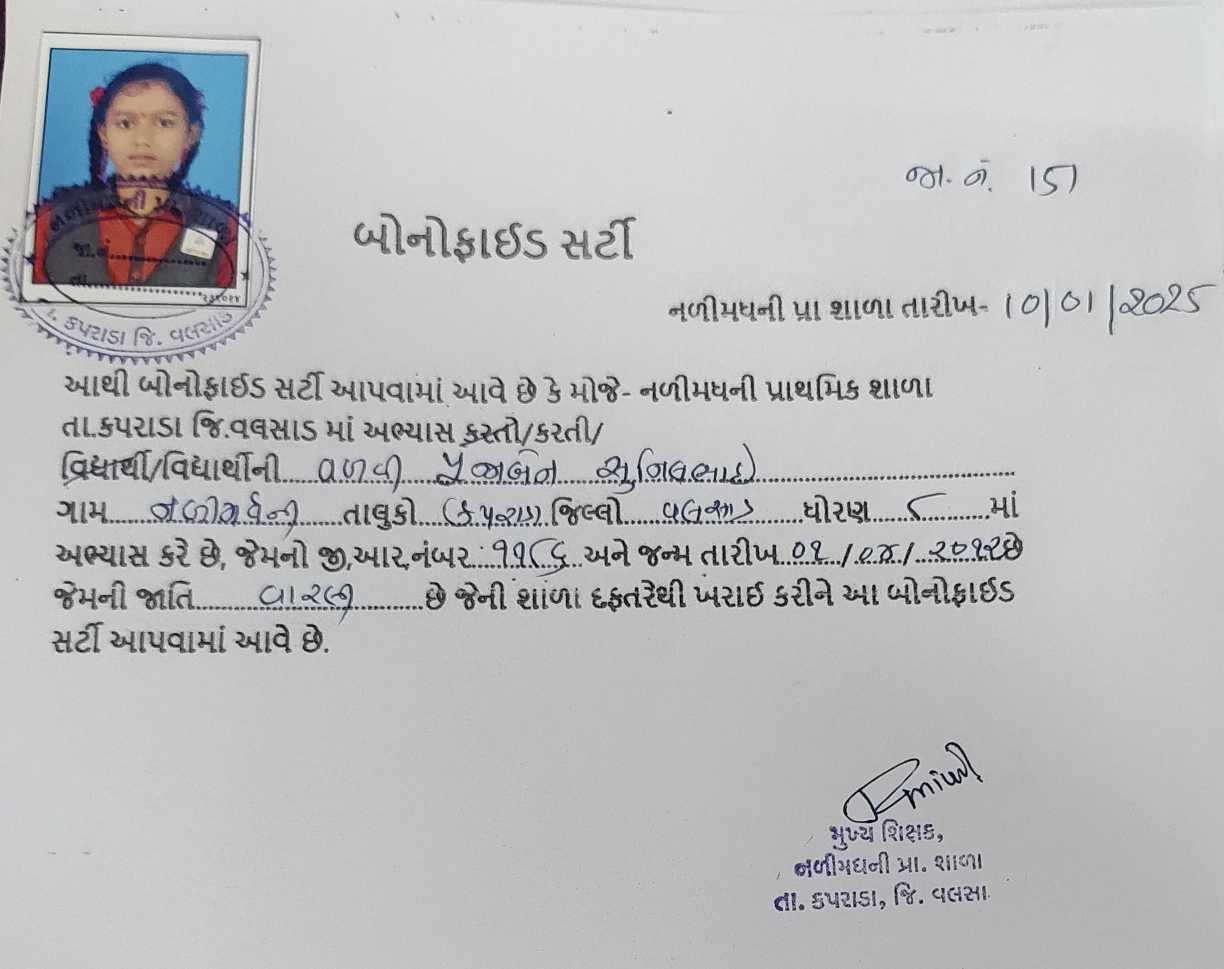 જા. નં. 151
બોનોફાઈડ સર્ટી
નળીમધની પ્રા શાળા તારીખ- 10/01/2025
જા.નં.
તા.
કપરાડા જિ. વલસાડ
આથી બોનોફાઈડ સર્ટી આપવામાં આવે છે કે મોજે- નળીમધની પ્રાથમિક શાળા
તા.કપરાડા જિ.વલસાડ માં અભ્યાસ કરતો/કરતી/
વિદ્યાર્થી/વિદ્યાર્થીની વળવી સુનિલભાઇ
ગામ નળીમધની તાલુકો કપરાડા જિલ્લો વલસાડ ધોરણ ૮ માં
અભ્યાસ કરે છે, જેમનો જી,આર,નંબર ૧૧૮૬ અને જન્મ તારીખ ૦૨/૦૪/૨૦૧૨છે
જેમની જાતિ વારલી છે જેની શાળા દફતરેથી ખરાઈ કરીને આ બોનોફાઈડ
સર્ટી આપવામાં આવે છે.
મુખ્ય શિક્ષક,
નળીમધની પ્રા. શાળા
તા. કપરાડા, જિ. વલસા